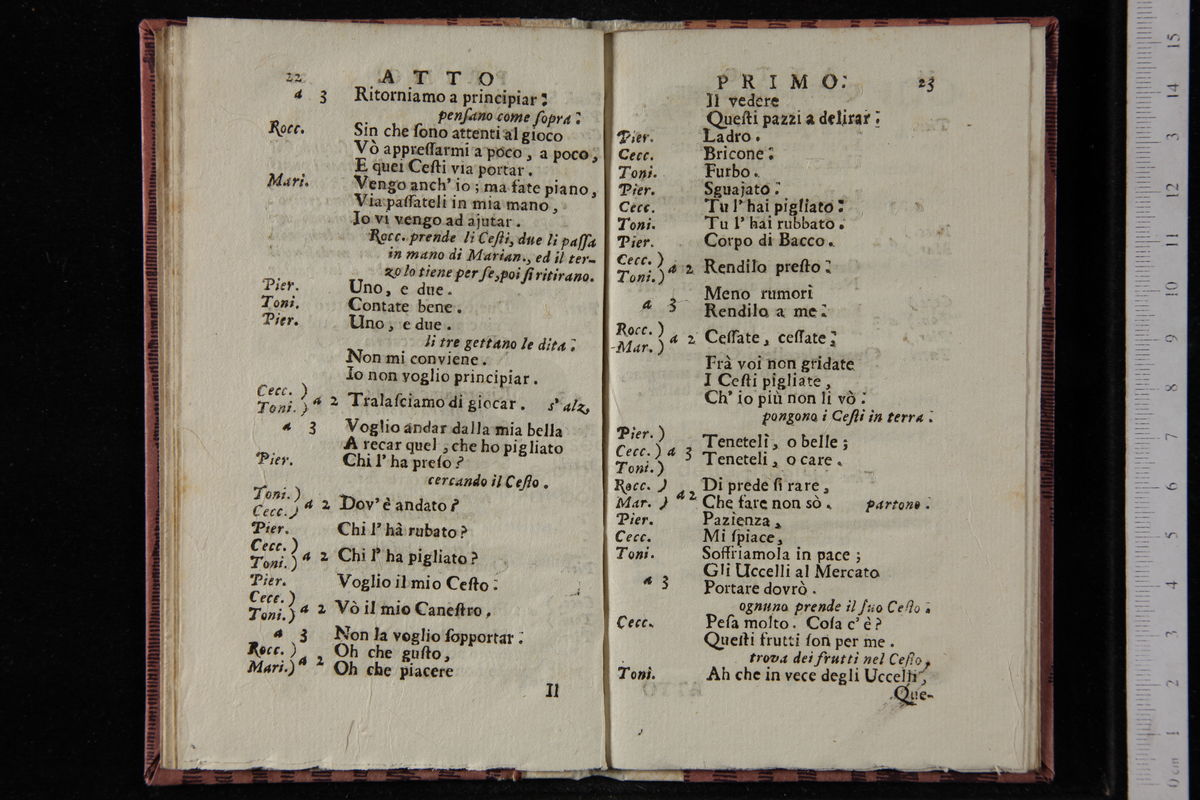 22 ATTO
a 3 Ritorniamo a principiar:
penſano come ſopra:
Rocc. Sin che ſono attenti al gioco
Vò appreſſarmi a poco, a poco,
E quei Ceſti via portar.
Mari. Vengo anch' io; ma fate piano,
Via paſſateli in mia mano,
Io vi vengo ad ajutar.
Rocc. prende li Ceſti, due li paſſa
in mano di Marian., ed il ter-
zo lo tiene per ſe, poi ſi ritirano.
Pier. Uno, e due.
Toni. Contate bene.
Pier. Uno, e due.
li tre gettano le dita:
Non mi conviene.
Io non voglio principiar.
Cecc. )
Toni. ) a 2 Tralaſciamo di giocar. s' alz,
a 3 Voglio andar dalla mia bella
A recar quel, che ho pigliato
Pier. Chi l' ha preſo?
cercando il Ceſto.
Toni. )
Cecc. ) a 2 Dov' è andato?
Pier. Chi l' hà rubato?
Cecc. )
Toni. ) a 2 Chi l' ha pigliato?
Pier. Voglio il mio Ceſto:
Cece. )
Toni. ) a 2 Vò il mio Caneſtro.
a 3 Non la voglio ſopportar:
Rocc. ) Oh che guſto,
Mari. ) a 2 Oh che piacere
Il
PRIMO: 23
Il vedere
Queſti pazzi a delirar:
Pier. Ladro.
Cecc. Bricone:
Toni. Furbo.
Pier. Sguajato:
Cecc. Tu l' hai pigliato:
Toni. Tu l' hai rubbato:
Pier. Corpo di Bacco.
Cecc. )
Toni. ) a 2 Rendilo preſto:
Meno rumori
a 3 Rendilo a me:
Rocc. )
Mar. ) a 2 Ceſſate, ceſſate:
Frà voi non gridate
I Ceſti pigliate,
Ch' io più non li vò:
pongono i Ceſti in terra:
Pier. )
Cecc. ) a 3 Tenetelì, o belle;
Toni. ) Teneteli, o care.
Rocc. ) Di prede ſi rare,
Mar. ) a 2 Che fare non sò. partono:
Pier. Pazienza,
Cecc. Mi ſpiace,
Toni. Soffriamola in pace;
Gli Uccelli al Mercato
a 3 Portare dovrò.
ognuno prende il ſuo Ceſto:
Cecc. Peſa molto. Coſa c' è?
Queſti frutti ſon per me.
trova dei frutti nel Ceſto,
Toni. Ah che in vece degli Uccelli,
Que-
0 cm 1 2 3 4 5 6 7 8 9 10 11 12 13 14 15